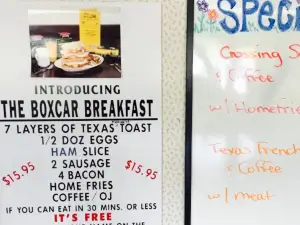 INTRODUCING
THE BOXCAR BREAKFAST
7 LAYERS OF TEXAS TOAST
1/2 DOZ EGGS
HAM SLICE
2 SAUSAGE
$15.95
$15.95
4 BACON
HOME FRIES
COFFEE/OJ
IF YOU CAN EAT IN 30 MINS. OR LESS
IT'S FREE
NAME ON THE
SPECI
Crossing S
& Coffee
w/ Homefrie
Texas French
& Coffee
w/ meat